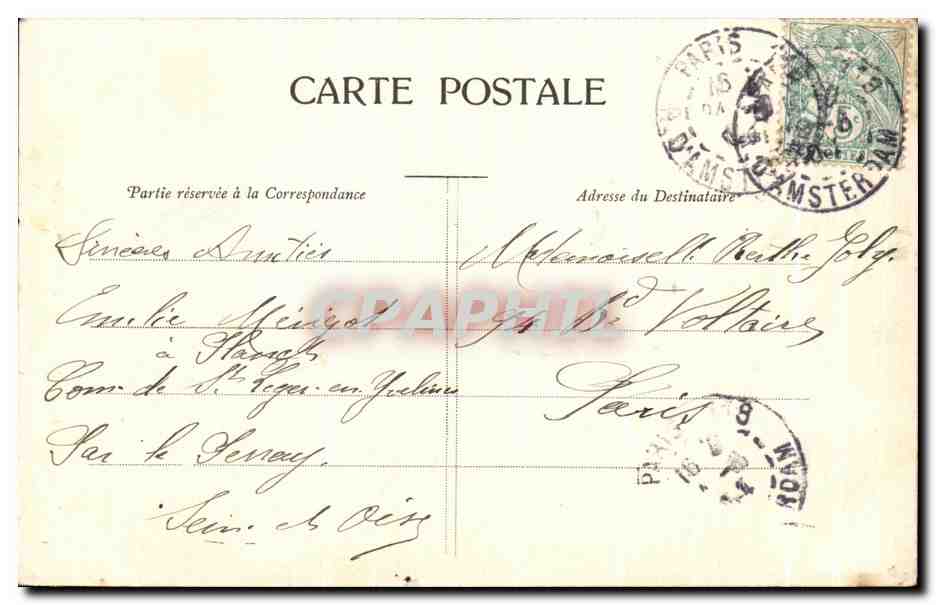 CARTE POSTALE
Partie réservée à la Correspondance
Sincères Amitiés
Emilie Mérigot
à Planet
Com. de St Leger-en-Yvelines
Par le Perray.
Seine et Oise
Adresse du Destinataire
Mademoiselle Berthe Joly.
94 Bd Voltaire
Paris
PARIS
D'AMSTERDAM
PARIS
CPAPHIL